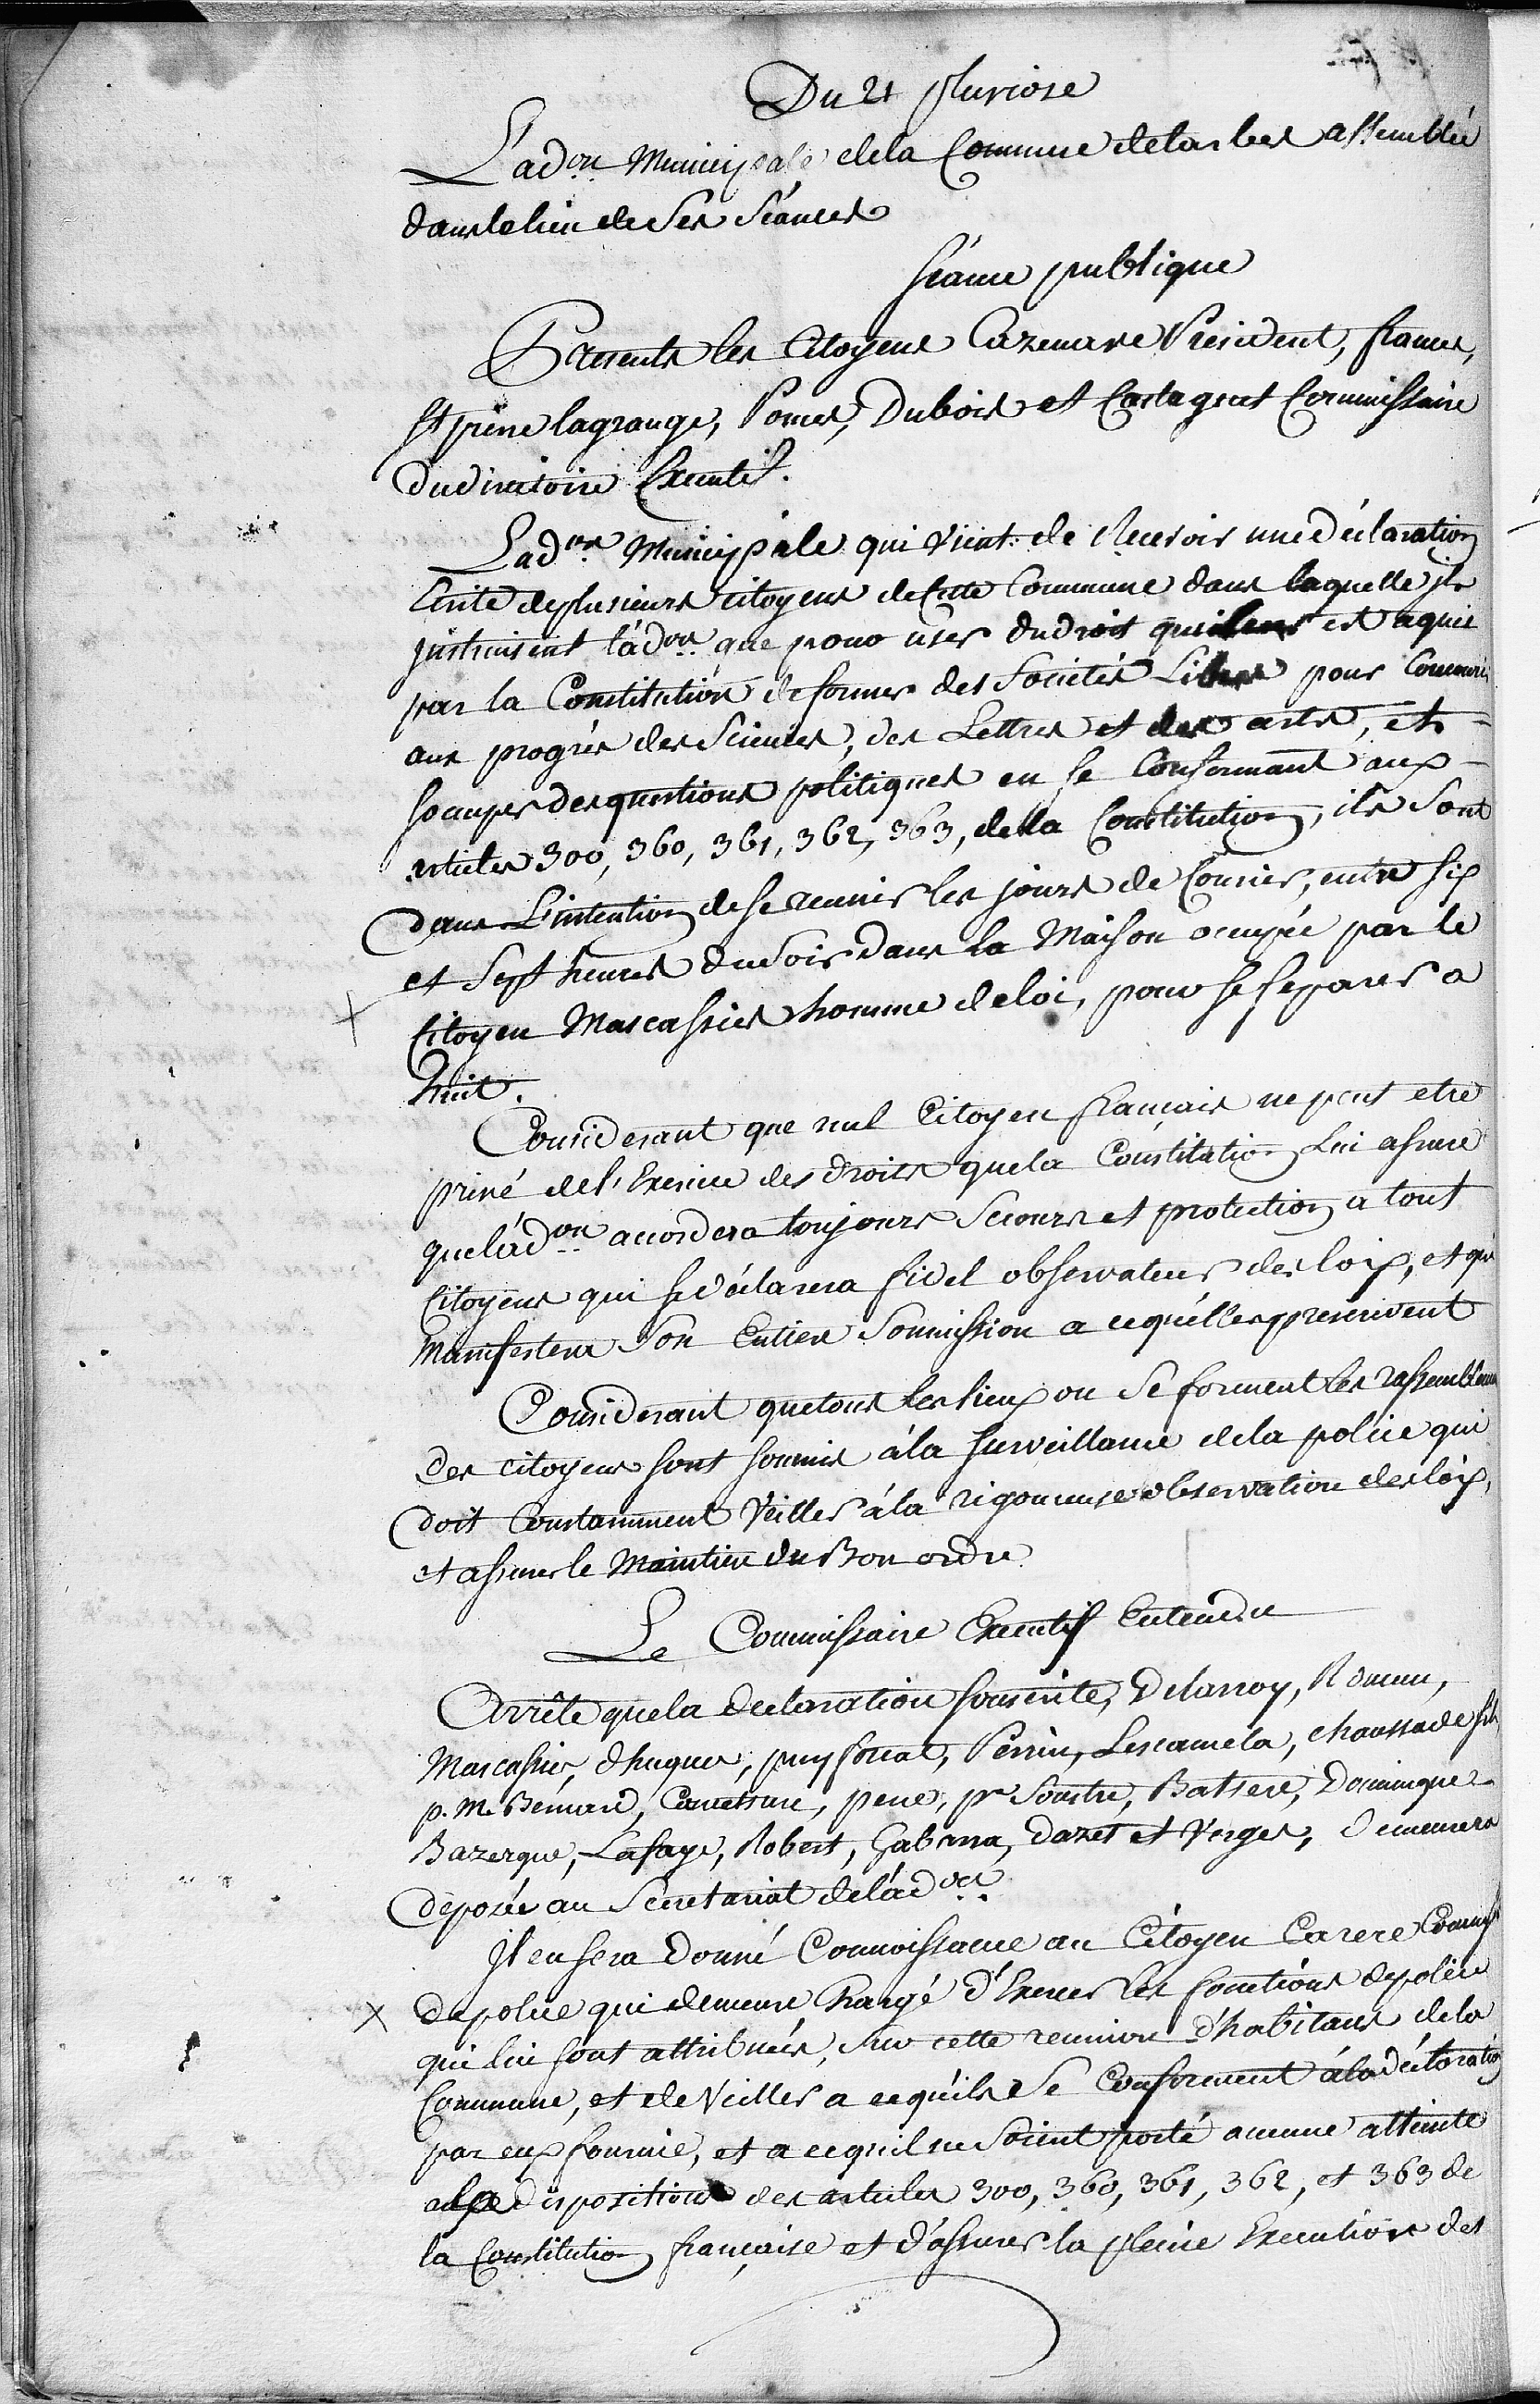 Du 21 pluviose
L'ad.on Municipale dela Commune detarbes assemblée
dans le lieu de Ses Séances
Séance publique
Presents les Citoyens Cazenave President, france,
St pierre lagrange, Pomes, Dubois et Castagnet Commissaire
du directoire Executif.
L'ad.on Municipale qui vient de Recevoir une déclaration
Ecrite de plusieurs citoyens de Cette Commune dans laquelle ils
instruisent l'ad.on que pour user du droit qui leur est aquis
par la Constitution de former des Sociétés Libres pour Concourir
aux progrès des Sciences, des Lettres et des arts, et
s'occuper des questions politiques en se Conformant aux
articles 300, 360, 361, 362, 363, de la Constitution, ils Sont
dans L'intention de se reunir les jours de Courier, entre six
et Sept heures du Soir dans la Maison occupée par le
Citoyen Mascassies homme de loi, pour se separer a
huit.
Considerant que nul Citoyen français ne peut etre
privé de l'Exercice des droits que la Constitution Lui assure
que l'ad.on accordera toujours Secours et protection a tout
Citoyens qui se déclarera fidel observateur des loix, et qui
Manifestera Son Entiere Soumission a ce qu'elles prescrivent
Considerant que tous les lieux ou Se forment les rassemblemens
des citoyens sont soumis à la surveillance de la police qui
doit Constamment Veiller à la rigoureuse observation des loix,
et assurer le Maintien du Bon ordre
Le Commissaire Executif Entendu
Arrête que la declaration souscrite, Delarroy,
Mascassies, dhugues, puyfourat, Perrin, Lescamela, chaussade fils
p. M. Bernard, pene, pre Soustre, Batsere, Dominique
Bazerque, Lafaye, Robert, Gabarra, dazet et Verges, demeurera
deposée au Sécretariat de l'ad.on
Il en sera donné Connoissance au Citoyen Carere Commiss.
de police qui demeure Chargé d'Exercer les fonctions de police
qui lui sont attribuées, sur cette reunion d'habitans de la
Commune, et de Veiller a ce qu'ils Se Conforment à la déclaration
par eux fournie, et a ce qu'il ne Soient porté aucune atteinte
a la disposition des articles 300, 360, 361, 362, et 363 de
la Constitution française et d'assurer la pleine Execution des